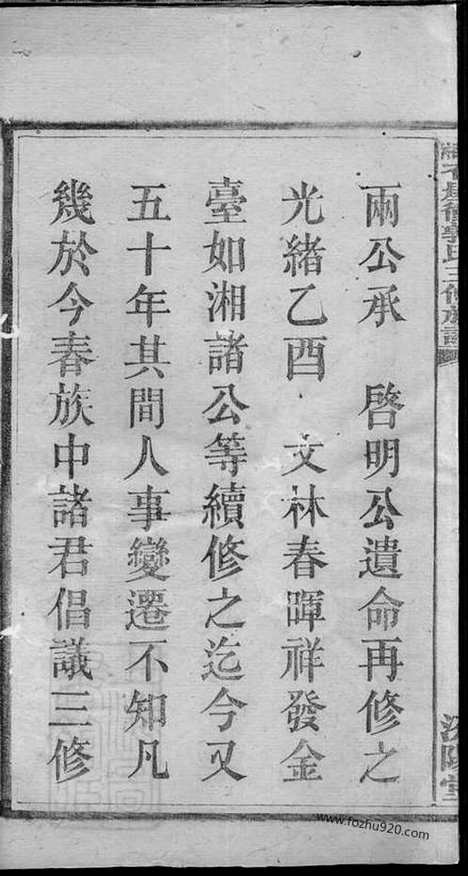 兩公承　啓明公遺命再修之
光緒乙酉　文林春暉祥發金
臺如湘諸公等續修之迄今又
五十年其間人事變遷不知凡
幾於今春族中諸君倡議三修
www.fozhu920.com